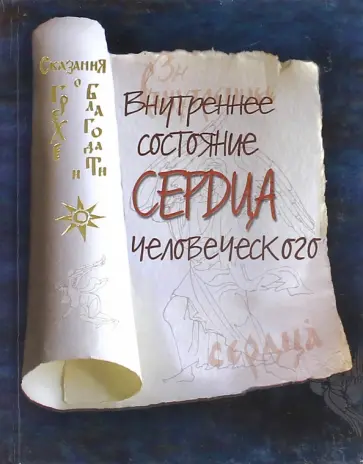 Сказания
о
Грехе
и
Благодати
Внутреннее
состояние
СЕРДЦА
человеческого
сердца